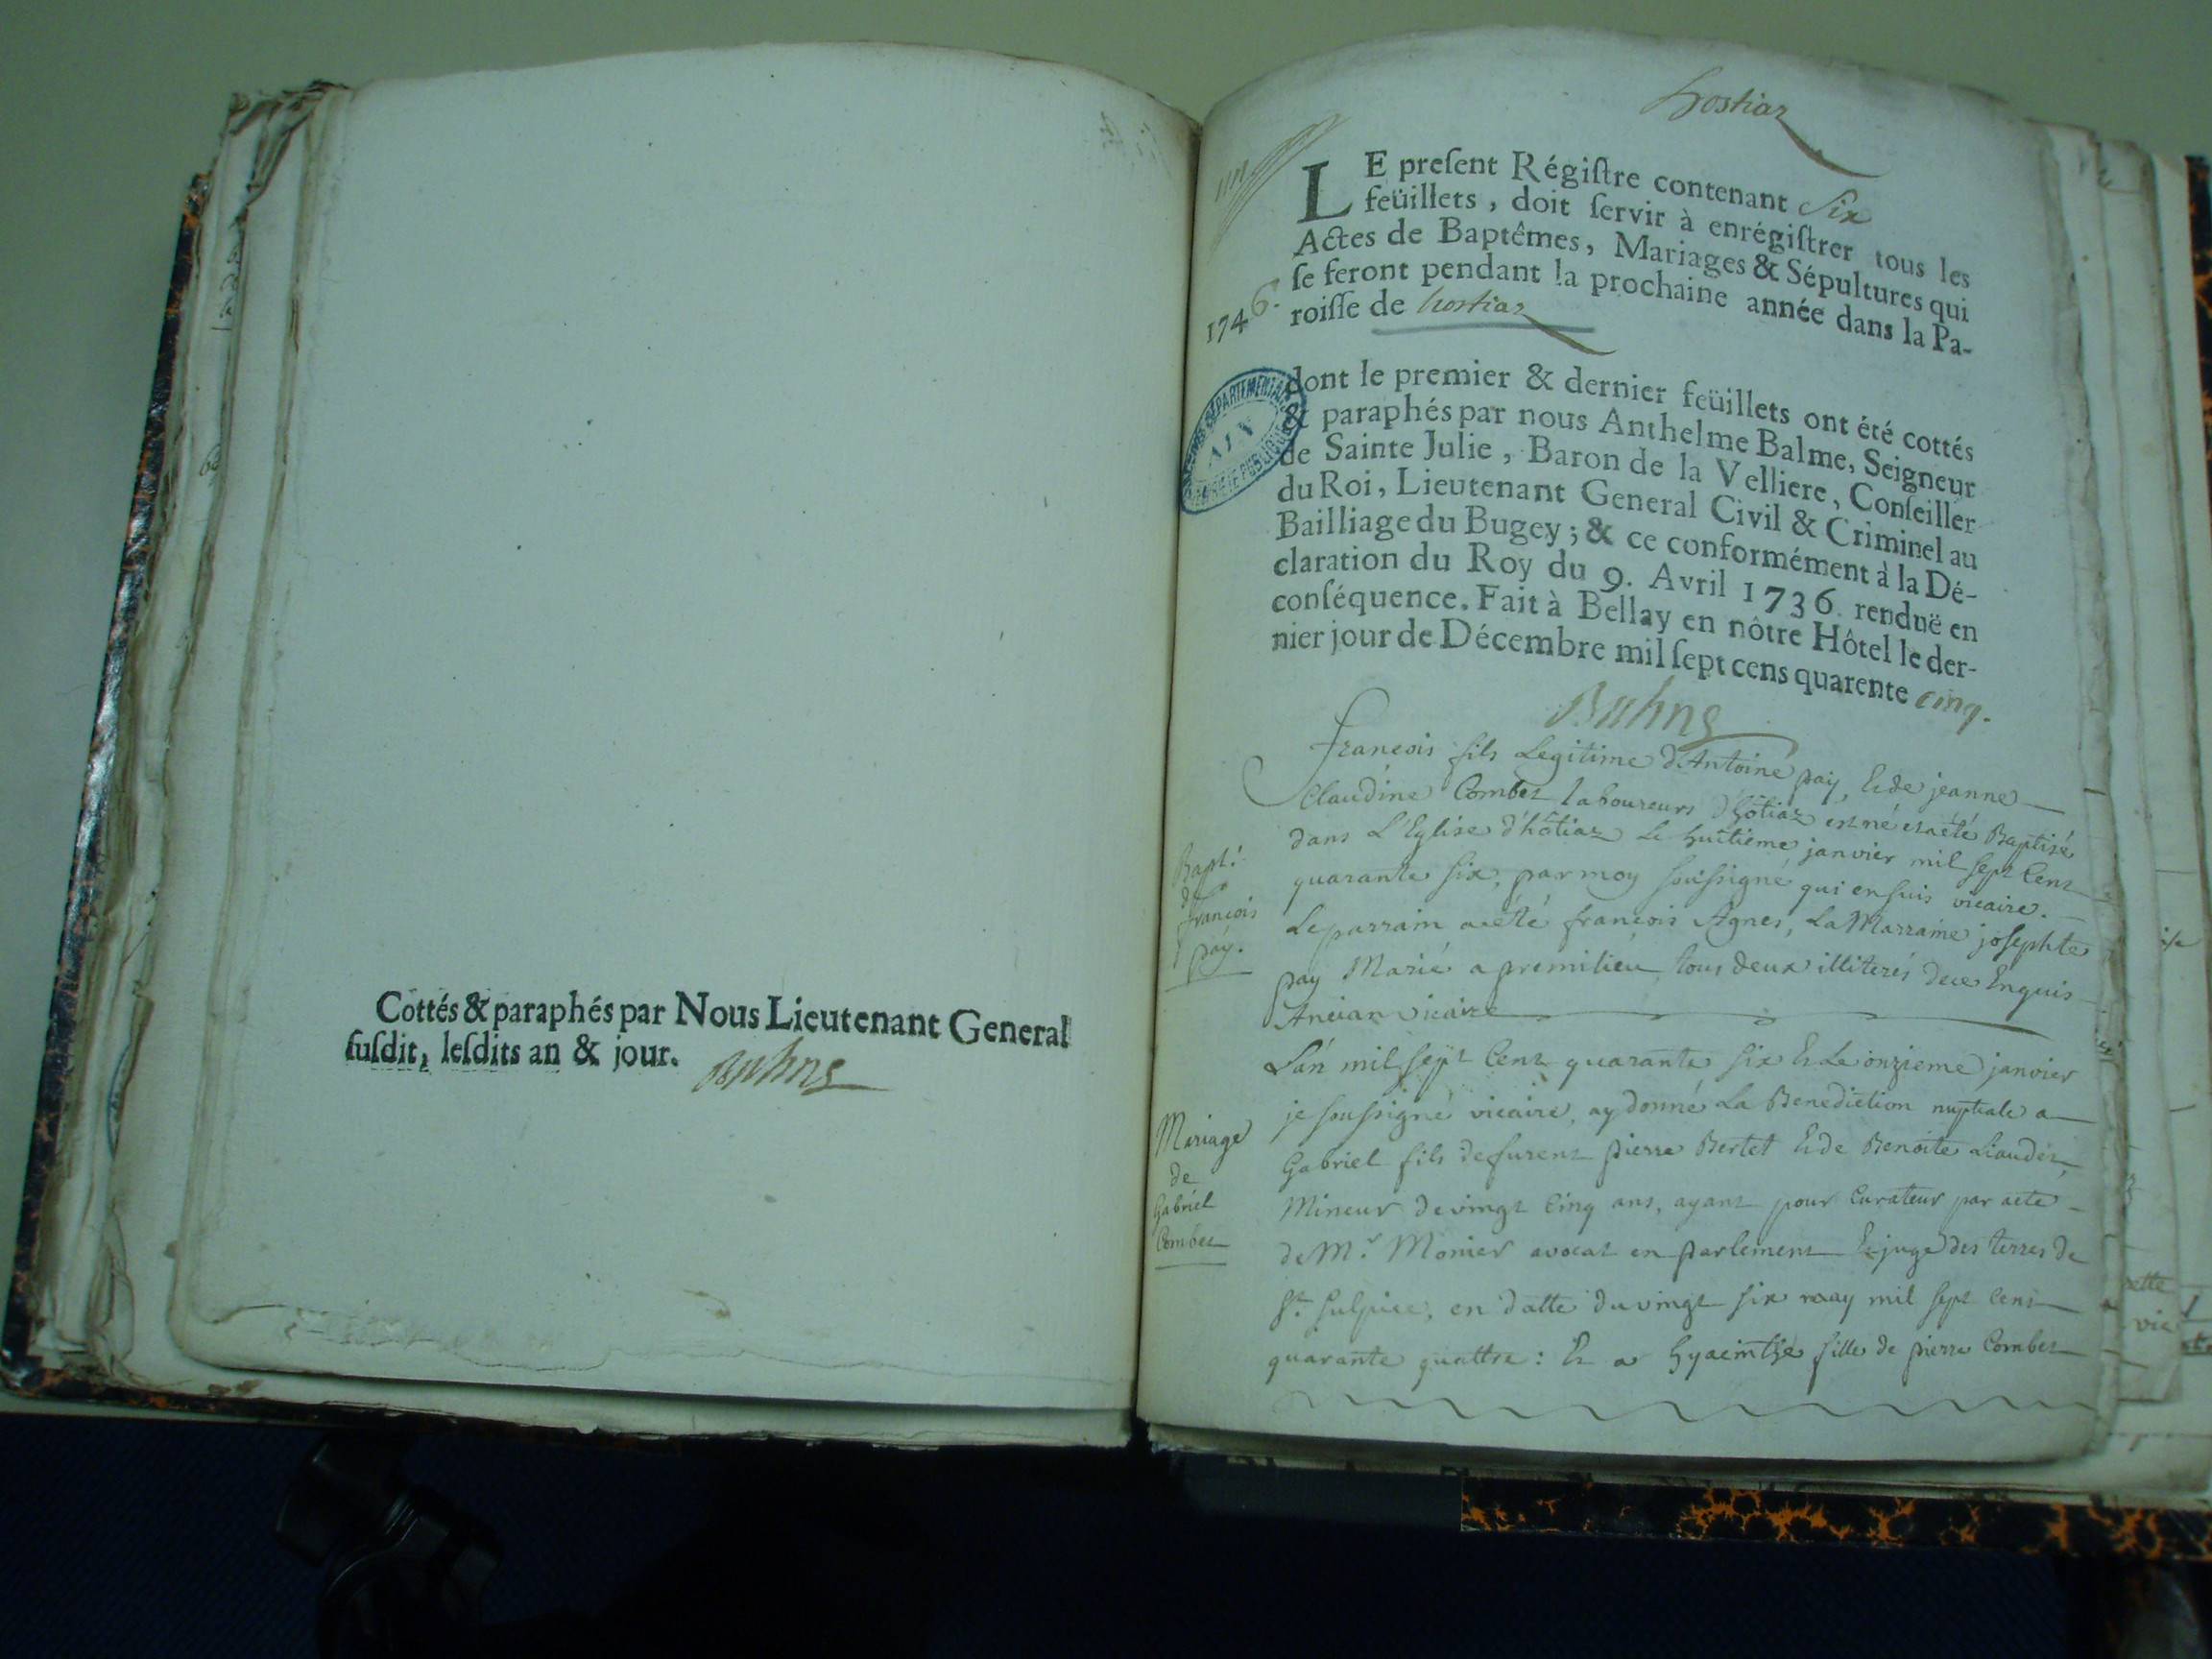 Cottés & paraphés par Nous Lieutenant General
susdit, lesdits an & jour.
hostiaz
LE present Régistre contenant Six
feüillets, doit servir à enrégistrer tous les
Actes de Baptêmes, Mariages & Sépultures qui
se feront pendant la prochaine année dans la Pa-
roisse de hostiaz
1746.
dont le premier & dernier feüillets ont été cottés
& paraphés par nous Anthelme Balme, Seigneur
de Sainte Julie, Baron de la Velliere, Conseiller
du Roi, Lieutenant General Civil & Criminel au
Bailliage du Bugey; & ce conformément à la Dé-
claration du Roy du 9. Avril 1736. renduë en
conséquence. Fait à Bellay en nôtre Hôtel le der-
nier jour de Décembre mil sept cens quarente cinq.
ARCHIVES DÉPARTEMENTALES
AIN
Bapt.
de
francois
pay.
francois fils Legitime d'Antoine pay, et de jeanne
Claudine Combet laboureurs d'hôtiaz est né et a été Baptisé
dans L'Eglise d'hôtiaz le huitieme janvier mil sept Cent
quarante six, par moy soussigné qui en suis vicaire.
Le parrain a été francois Agnes, La Marraine josephte
pay Marié a premilieu tous deux illiterés de ce Enquis
Ancian vicaire
Mariage
de
Gabriel
Combet
L'an mil sept Cent quarante six et Le onzieme janvier
je soussigné vicaire, ay donné La Benediction nuptiale a
Gabriel fils de furent pierre Bertet et de Benoite Liaudet,
Mineur de vingt Cinq ans, ayant pour Curateur par acte
de Mr. Monier avocat en parlement et juge des terres de
St. Sulpice, en datte du vingt six may mil sept Cent
quarante quattre: Et a hyacinthe fille de pierre Combet